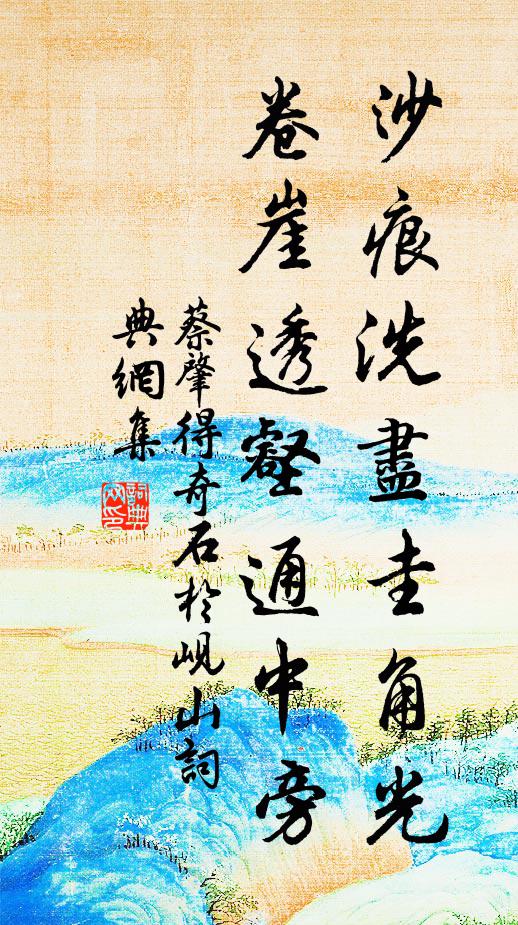 沙痕洗盡圭角光
卷崖透壑通中旁
蔡肇得奇石於峴山詞
典網集
詞典网印